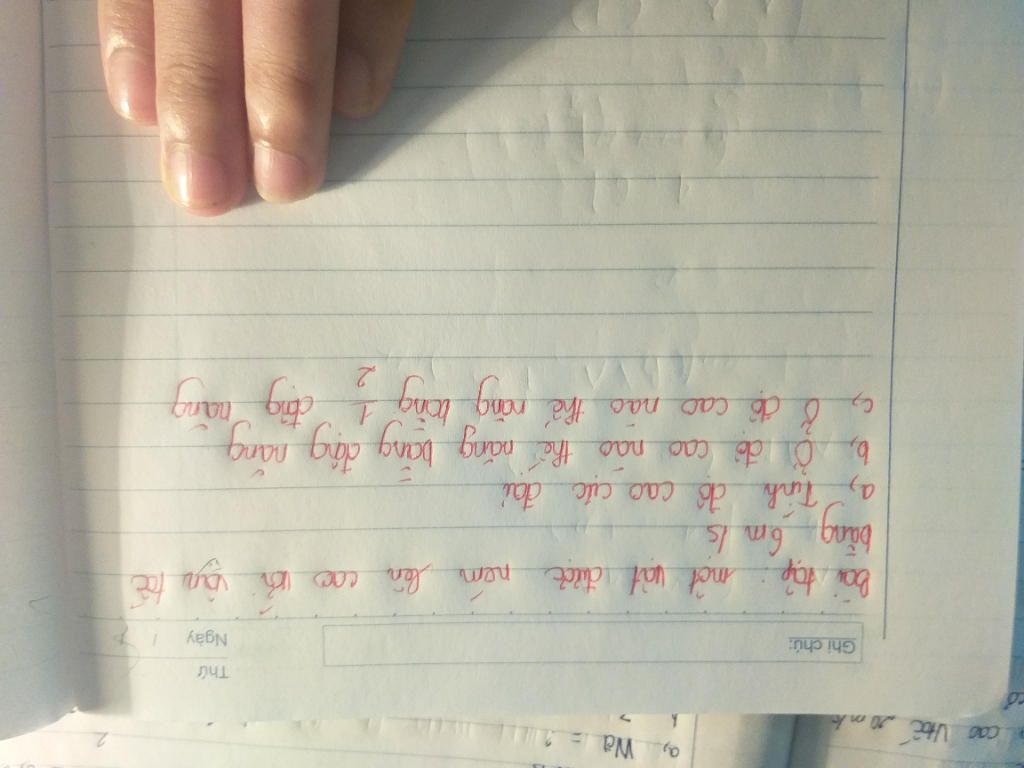 Thứ
Ghi chú:
Ngày 1
bài tập: một vật được ném lên cao với vận tốc
bằng 6m/s
a, Tính độ cao cực đại
b, Ở độ cao nào thế năng bằng động năng
c, Ở độ cao nào thế năng bằng 1/2 động năng
a, Wđ = ?
2
cao vtốc 20 m/s